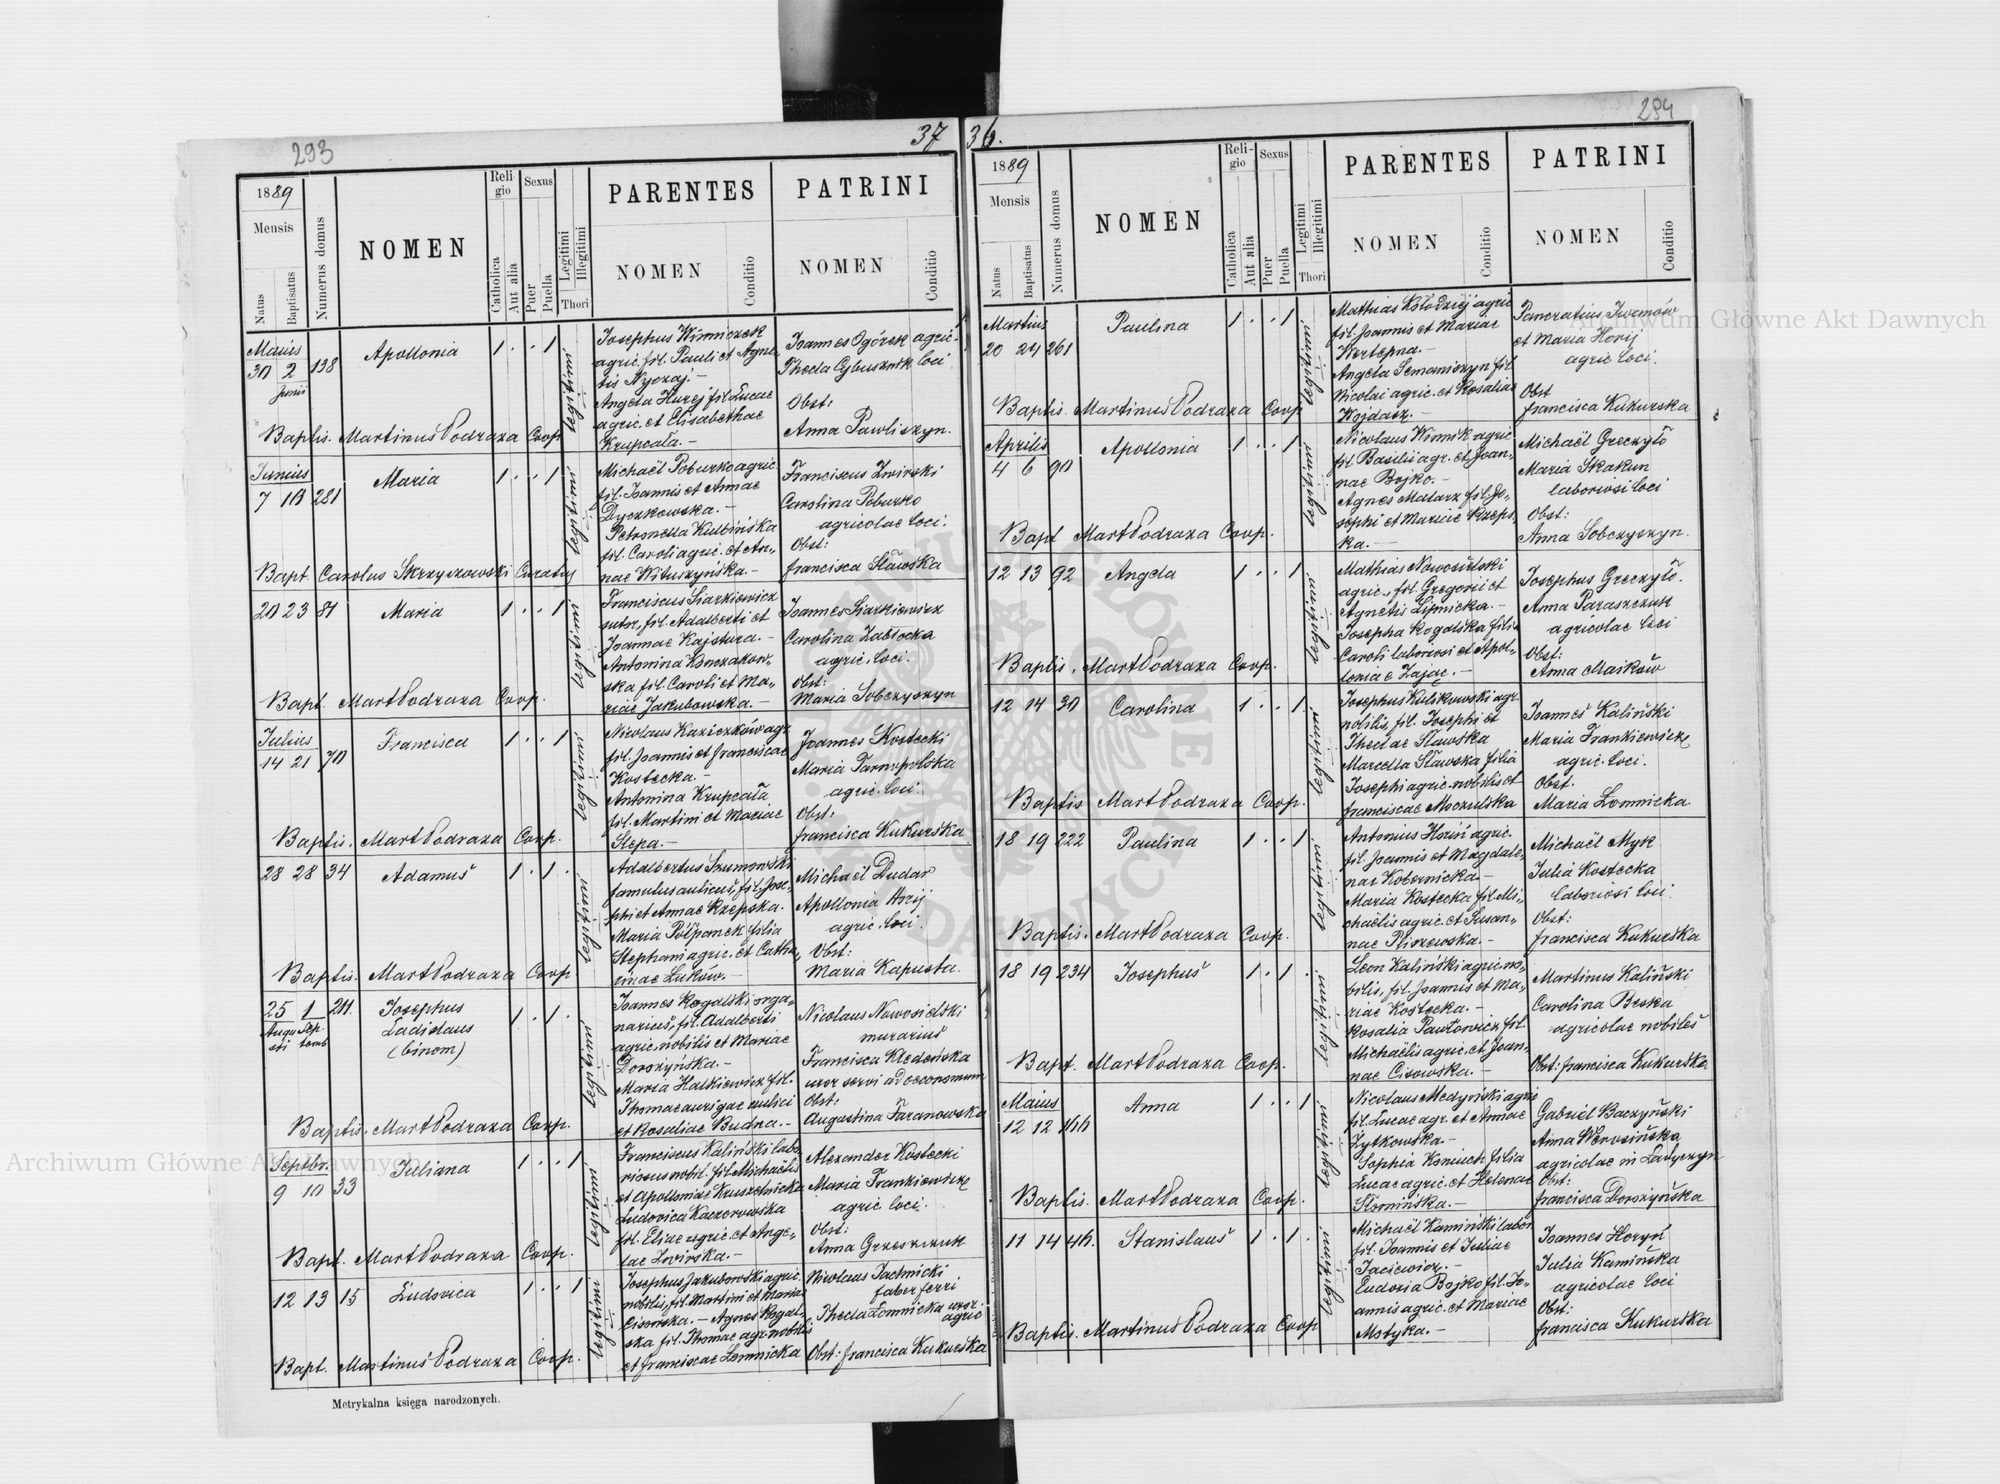 293
37
1889
Mensis
Natus
Baptisatus
Numerus domus
NOMEN
Religio
Catholica
Aut alia
Sexus
Puer
Puella
Legitimi
Illegitimi
Thori
PARENTES
NOMEN
Conditio
PATRINI
NOMEN
Conditio
Maius
30 2 138 Apollonia 1 . . 1 legitimi
Junii
Josephus Winniczek
agric. fil. Pauli et Agne
tis Nyczaj.-
Angela Hurej fil. Lucae
agric. et Elisabethae
Krupcała.-
Joannes Ogórek agric.
Thecla Cybusznik loci
Obst:
Anna Pawliszyn.
Baptis. Martinus Podraza Coop
Junius
7 10 281 Maria 1 . . 1 legitimi
Michaël Poburko agric.
fil. Joannis et Annae
Dyczkowska.-
Petronella Kulbińska
fil. Caroli agric. et An-
nae Wituszyńska.-
Franciscus Zwirski
Carolina Poburko
agricolae loci.
Obst:
francisca Sławska
Bapt. Carolus Skrzyszowski Curatus
20 23 81 Maria 1 . . 1 legitimi
Franciscus Siarkiewicz
sutor, fil. Adalberti et
Joannae Kajstura.-
Antonina Konczakow-
ska fil. Caroli et Ma-
riae Jakubowska.-
Joannes Siarkiewicz
Carolina Zabłocka
agric. loci.
Obst:
Maria Sobczyszyn
Bapt. Mart Podraza Coop.
Julius
14 21 70 Francisca 1 . . 1 legitimi
Nicolaus Kaziczków agr.
fil. Joannis et franciscae
Kostecka.-
Antonina Krupcała
fil. Martini et Mariae
Stepa.-
Joannes Kostecki
Maria Tarnopolska
agric. loci.
Obst:
francisca Kukurska
Baptis. Mart Podraza Coop.
28 28 34 Adamus 1 . 1 . legitimi
Adalbertus Szumowski
famulus aulicus, fil. Jose-
phi et Annae Rzepska.
Maria Półpanek filia
Stephani agric. et Catha-
rinae Luków.-
Michaël Dudar
Apollonia Horij
agric. loci.
Obst:
Maria Kapusta.
Baptis. Mart Podraza Coop.
25 1 211. Josephus 1 . 1 . legitimi
Augusti Septemb
Ladislaus
(binom)
Joannes Rogalski orga-
narius, fil. Adalberti
agric. nobilis et Mariae
Doroszyńska.-
Maria Halkiewicz fil.
Thomae aurigae aulici
et Rosaliae Budna.-
Nicolaus Nowosielski
murarius
Francisca Kledeńska
uxor servi ad oeconomum
Obst:
Augustina Taranowska
Baptis. Mart Podraza Coop.
Septbr.
9 10 33 Juliana 1 . . 1 legitimi
Franciscus Kaliński labo
riosus nobil. fil. Michaëlis
et Apolloniae Kruszelnicka
Ludovica Kaczorowska
fil. Eliae agric. et Ange-
lae Zwirska.-
Alexander Kostecki
Maria Frankiewicz
agric. loci.
Obst:
Anna Grzeszczuk
Bapt. Mart Podraza Coop.
12 13 15 Ludovica 1 . . 1 legitimi
Josephus Jakubowski agric.
nobilis, fil. Martini et Mariae
Cisowska.- Agnes Rogal-
ska fil. Thomae agr. nobilis
et franciscae Łomnicka
Nicolaus Jachnicki
faber ferri
Thecla Łomnicka uxor
agric
Obst: francisca Kukurska
Bapt. Martinus Podraza Coop.
Metrykalna księga narodzonych.
294
36.
1889
Mensis
Natus
Baptisatus
Numerus domus
NOMEN
Religio
Catholica
Aut alia
Sexus
Puer
Puella
Legitimi
Illegitimi
Thori
PARENTES
NOMEN
Conditio
PATRINI
NOMEN
Conditio
Martius
20 24 261 Paulina 1 . . 1 legitimi
Mathias Kołodziej agric
fil. Joannis et Mariae
Wertepna.-
Angela Semaniszyn fil
Nicolai agric. et Rosaliae
Wojdasz.-
Pancratius Iwanów
et Maria Horij
agric loci.
Obst
francisca Kukurska
Baptis. Martinus Podraza Coop
Aprilis
4 6 90 Apollonia 1 . . 1 legitimi
Nicolaus Winnik agric
fil Basilii agr. et Joan-
nae Bojko.-
Agnes Matarz fil. Jo-
sephi et Mariae Rzeps-
ka.-
Michaël Greczyło
Maria Skakun
laboriosi loci
Obst:
Anna Sobczyszyn.
Bapt Mart Podraza Coop.
12 13 92 Angela 1 . . 1 legitimi
Mathias Nowosielski
agric., fil. Gregorii et
Agnetis Lipnicka.-
Josepha Rogalska filia
Caroli laboriosi et Apol-
loniae Zając.-
Josephus Greczyło.
Anna Paraszczuk
agricolae loci
Obst:
Anna Maików
Baptis. Mart Podraza Coop.
12 14 30 Carolina 1 . . 1 legitimi
Josephus Kulikowski agr.
nobilis, fil. Josephi et
Theclae Sławska
Marcella Sławska filia
Josephi agric. nobilis et
franciscae Moczulska
Joannes Kaliński
Maria Frankiewicz
agric. loci.
Obst.
Maria Łomnicka
Baptis Mart Podraza Coop.
18 19 222 Paulina 1 . . 1 legitimi
Antonius Horiń agric.
fil. Joannis et Magdale-
nae Kobernicka.-
Maria Kostecka fil. Mi-
chaëlis agric. et Susan-
nae Pliszewska.-
Michaël Myk
Julia Kostecka
laboriosi loci.
Obst:
francisca Kukurska
Baptis. Mart Podraza Coop.
18 19 234 Josephus 1 . 1 . legitimi
Leon Kaliński agric. no-
bilis, fil. Joannis et Ma-
riae Kostecka.-
Rosalia Pawłowicz fil.
Michaëlis agric. et Joan-
nae Cisowska.-
Martinus Kaliński
Carolina Beska
agricolae nobiles
Obst: francisca Kukurska
Bapt. Mart Podraza Coop.
Maius
12 12 166 Anna 1 . . 1 legitimi
Nicolaus Medyński agric
fil. Lucae agr. et Annae
Żytkowska.-
Sophia Koniuch filia
Lucae agric. et Helenae
Słomińska.-
Gabriel Baczyński
Anna Werosińska
agricolae in Ladyczyn
Obst:
francisca Doroszyńska
Baptis. Mart Podraza Coop.
11 14 46. Stanislaus 1 . 1 . legitimi
Michaël Kamiński labor
fil. Joannis et Juliae
Jaciewicz.-
Eudoxia Bojko fil. Jo-
annis agric. et Mariae
Motyka.-
Joannes Horyń
Julia Kamińska
agricolae loci
Obst:
francisca Kukurska
Baptis. Martinus Podraza Coop
Archiwum Główne Akt Dawnych
Archiwum Główne Akt Dawnych
ARCHIWUM GŁÓWNE AKT DAWNYCH